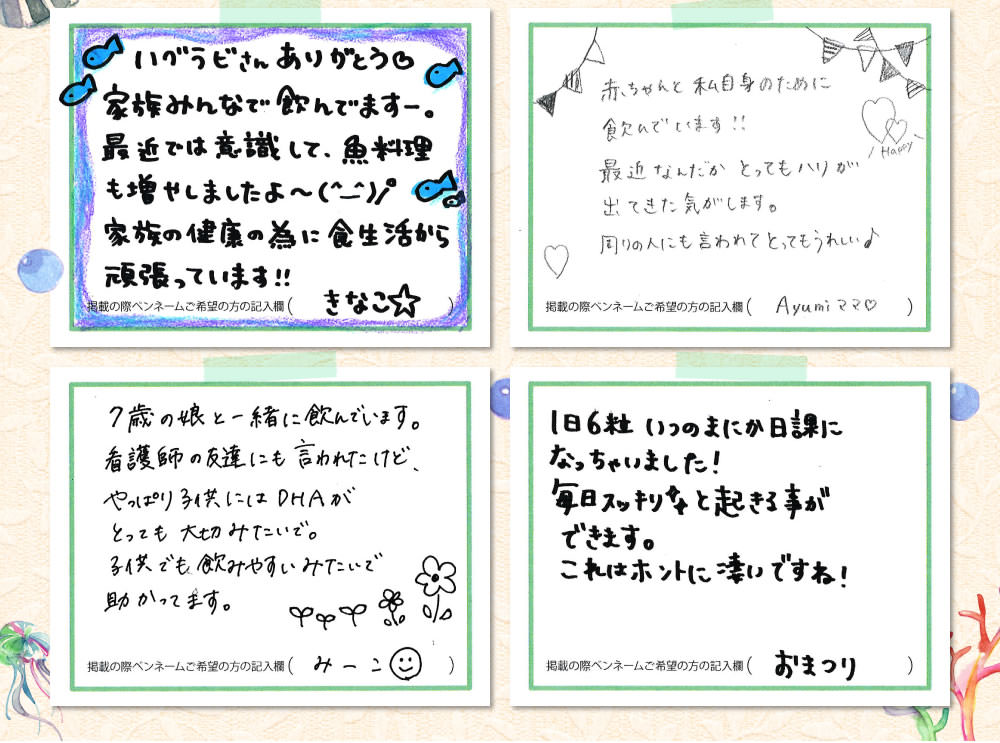 いグラビさんありがとう♡
家族みんなで飲んでますー。
最近では意識して、魚料理
も増やしましたよ～(^_^)/゜
家族の健康の為に食生活から
頑張っています!!
掲載の際ペンネームご希望の方の記入欄( きなこ☆ )
赤ちゃんと私自身のために
飲んでいます!!
最近なんだかとってもハリが
出てきた気がします。
周りの人にも言われてとってもうれしい♪
Happy
掲載の際ペンネームご希望の方の記入欄( Ayumiママ♡ )
7歳の娘と一緒に飲んでいます。
看護師の友達にも言われたけど、
やっぱり子供にはDHAが
とっても大切みたいで。
子供でも飲みやすいみたいで
助かってます。
掲載の際ペンネームご希望の方の記入欄( みーこ☺ )
1日6粒いつのまにか日課に
なっちゃいました!
毎日スッキリなと起きる事が
できます。
これはホントに凄いですね!
掲載の際ペンネームご希望の方の記入欄( おまつり )